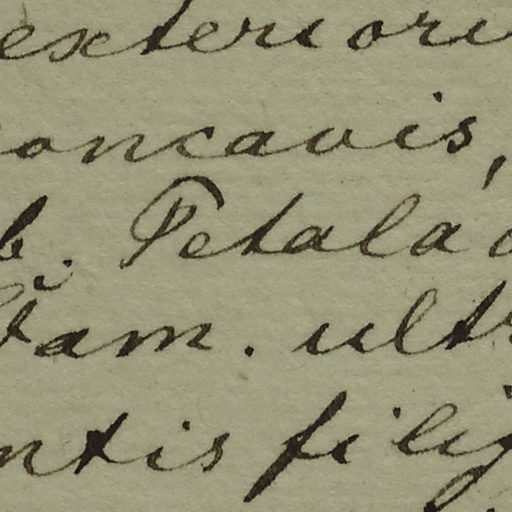 exteriori
concavis,
b. Petala
Stam. ultr
ntis fili